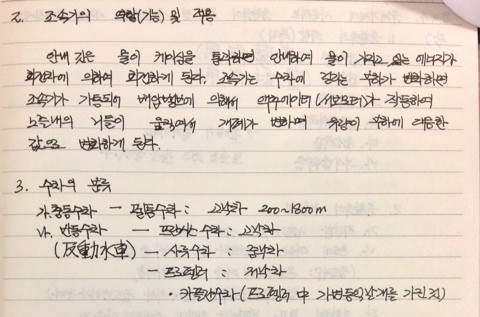 2. 조속기의 역할(기능) 및 적용
안내깃은 물이 케이싱을 통과하면 안내하여 물이 가지고 있는 에너지가
회전차에 의하여 회전하게 된다. 조속기는 수차에 걸리는 부하가 변화하면
조속기가 가동되어 배압밸브에 의해서 액추에이터(서보모터)가 작동하여
노즐내의 니들이 움직여서 개폐가 변하며 유량이 부하에 대응한
값으로 변화하게 된다.
3. 수차의 분류
가. 충동수차 — 펠톤수차 : 고낙차 200~1800m
나. 반동수차 — 프란시스수차 : 고낙차
(反動水車) — 사류수차 : 중낙차
— 프로펠러 저낙차
• 카플란수차 (프로펠러 中 가변동익날개를 가진 것)